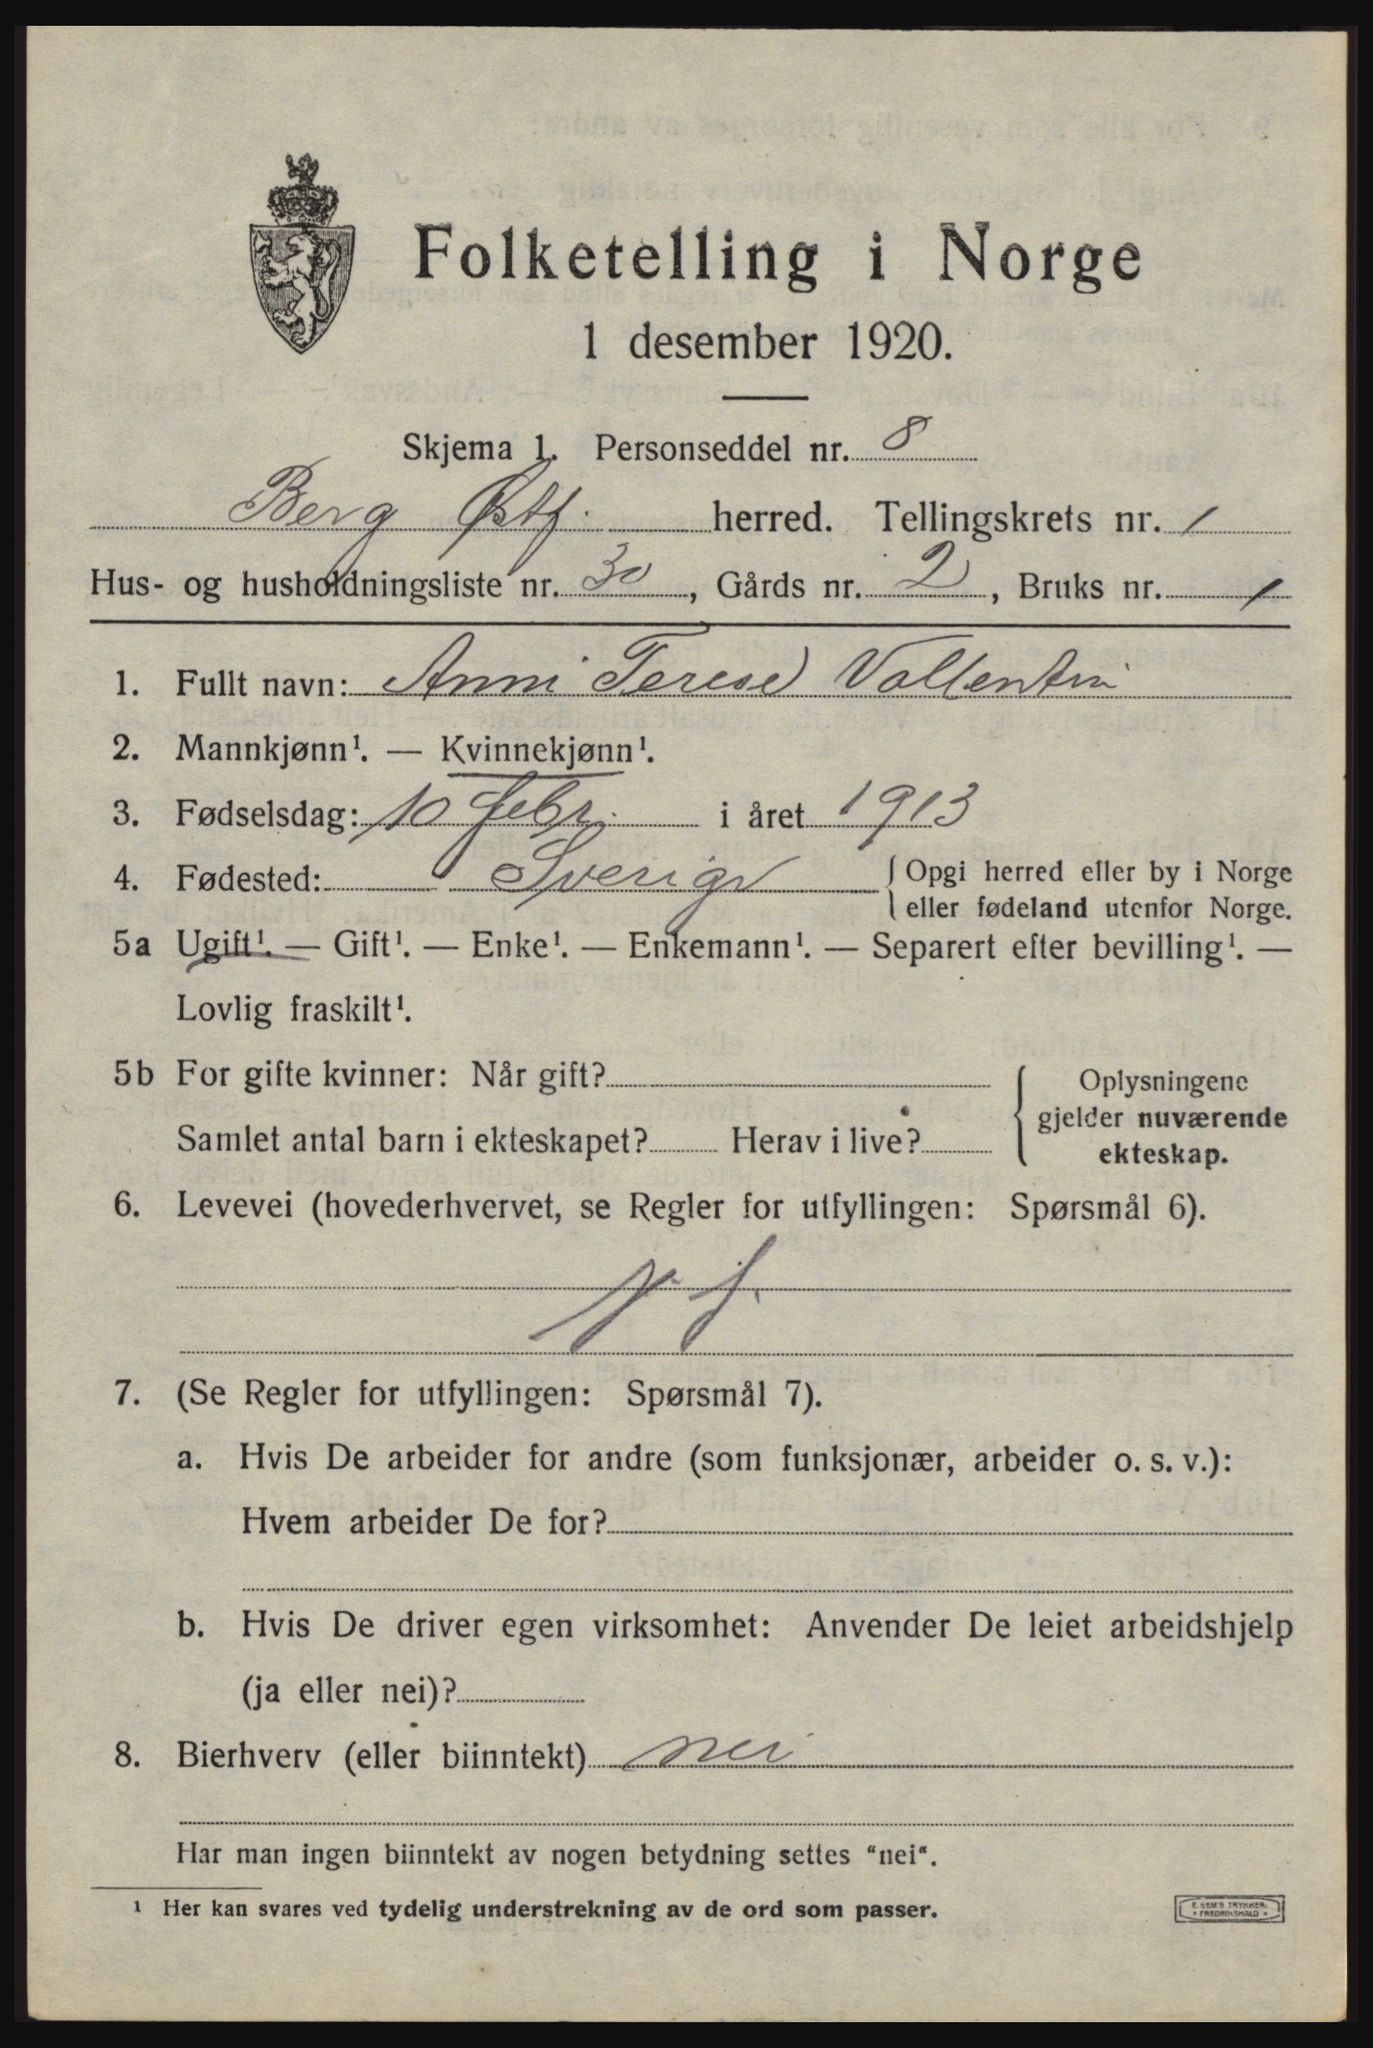 Folketelling i Norge
1 desember 1920.
Skjema 1. Personseddel nr. 8
Berg Østf. herred. Tellingskrets nr. 1
Hus- og husholdningsliste nr. 30, Gårds nr. 2, Bruks nr. 1
1. Fullt navn: Anni Terese Vallentin
2. Mannkjønn¹. — Kvinnekjønn¹.
3. Fødselsdag: 10 febr. i året 1913
4. Fødested: Sverige { Opgi herred eller by i Norge
eller fødeland utenfor Norge.
5a Ugift¹. — Gift¹. — Enke¹. — Enkemann¹. — Separert efter bevilling¹. —
Lovlig fraskilt¹.
5b For gifte kvinner: Når gift?
Samlet antal barn i ekteskapet? Herav i live?
Oplysningene
gjelder nuværende
ekteskap.
6. Levevei (hovederhvervet, se Regler for utfyllingen: Spørsmål 6).
7. (Se Regler for utfyllingen: Spørsmål 7).
a. Hvis De arbeider for andre (som funksjonær, arbeider o. s. v.):
Hvem arbeider De for?
b. Hvis De driver egen virksomhet: Anvender De leiet arbeidshjelp
(ja eller nei)?
8. Bierhverv (eller biinntekt) nei
Har man ingen biinntekt av nogen betydning settes "nei".
¹ Her kan svares ved tydelig understrekning av de ord som passer.
E. SEM'S TRYKKERI,
* FREDRIKSHALD *